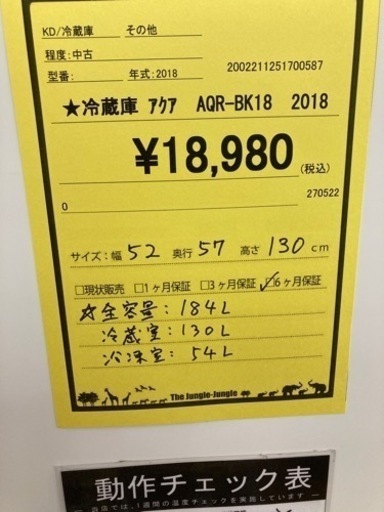 KD/冷蔵庫 その他
程度:中古
型番: 年式:2018 2002211251700587
★冷蔵庫 ｱｸｱ AQR-BK18 2018
¥18,980(税込)
0 270522
サイズ:幅 52 奥行 57 高さ 130 cm
□現状販売 □1ヶ月保証 □3ヶ月保証 ☑6ヶ月保証
☆全容量:184L
冷蔵室:130L
冷凍室:54L
The Jungle-Jungle
動作チェック表
当店では、1週間の温度チェックを実施しています